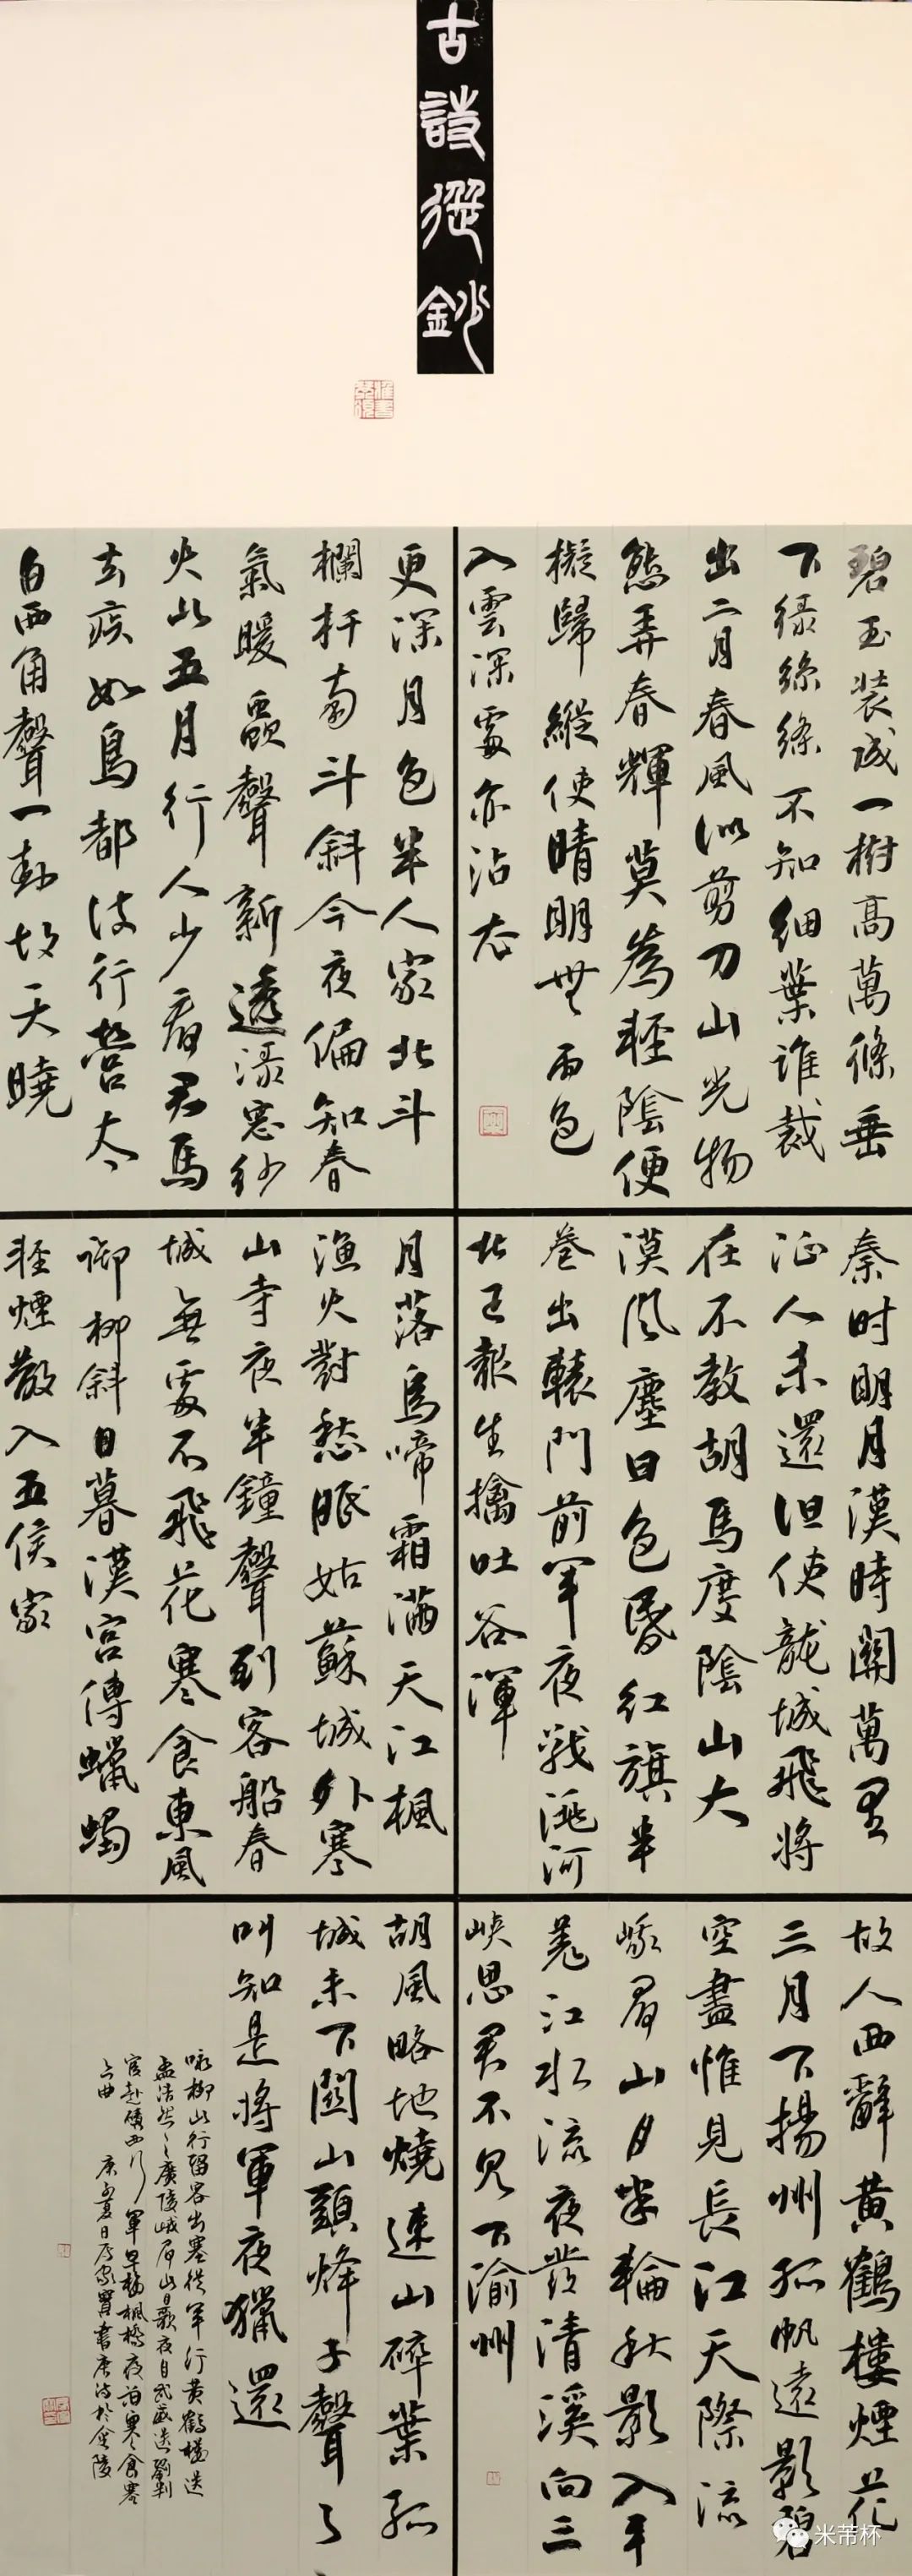 古詩選鈔
碧玉裝成一樹高萬條垂
下綠絲絛不知細葉誰裁
出二月春風似剪刀山光物
態弄春輝莫為輕陰便
擬歸縱使晴明無雨色
入雲深處亦沾衣
更深月色半人家北斗
欄杆南斗斜今夜偏知春
氣暖蟲聲新透綠窗紗
火山五月行人少看君馬
去疾如鳥都護行營太
白西角聲一動胡天曉
秦时明月漢時關萬里
征人未還但使龍城飛將
在不教胡馬度陰山大
漠風塵日色昏紅旗半
卷出轅門前軍夜戰洮河
北已報生擒吐谷渾
月落烏啼霜滿天江楓
漁火對愁眠姑蘇城外寒
山寺夜半鐘聲到客船春
城無處不飛花寒食東風
御柳斜日暮漢宮傳蠟蠋
輕煙散入五侯家
故人西辭黃鶴樓煙花
三月下揚州孤帆遠影碧
空盡惟見長江天際流
峨眉山月半輪秋影入平
羌江水流夜發清溪向三
峽思君不見下渝州
胡風略地燒連山碎葉孤
城未下關山頭烽子聲々
叫知是將軍夜獵還
咏柳山行留客出塞從軍行黃鶴樓送
孟浩然之廣陵峨眉山月歌夜月武威送劉判
官赴磧西行軍早梅楓橋夜泊寒食寒
上曲 庚子夏日書唐詩於金陵
米芾杯